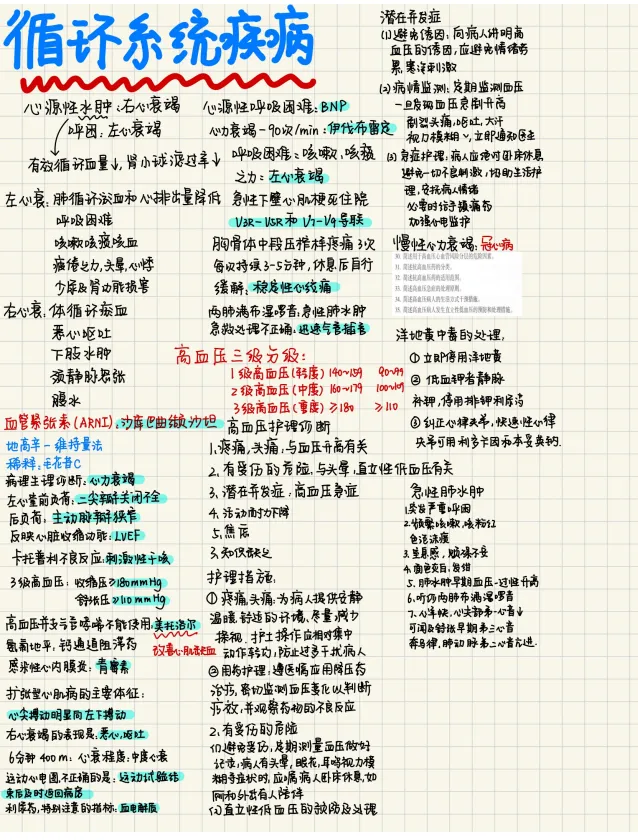 循环系统疾病
心源性水肿:右心衰竭
呼困:左心衰竭
有效循环血量↓,肾小球滤过率↓
左心衰:肺循环淤血和心排出量降低
呼吸困难
咳嗽咳痰咳血
疲倦乏力,头晕,心悸
少尿及肾功能损害
右心衰:体循环瘀血
恶心呕吐
下肢水肿
颈静脉怒张
腹水
血管紧张素(ARNI):沙库巴曲缬沙坦
地高辛-维持量法
稀释:毛花苷C
病理生理诊断:心力衰竭
左心室前负荷:二尖瓣关闭不全
后负荷:主动脉瓣狭窄
反映心脏收缩功能:LVEF
卡托普利不良反应:刺激性干咳
3级高血压:收缩压≥180mmHg
舒张压≥110mmHg
高血压并支气管哮喘不能使用:美托洛尔
氨氯地平,钙通道阻滞药
改善心肌缺血
感染性心内膜炎:青霉素
扩张型心肌病的主要体征:
心尖搏动明显向左下搏动
右心衰竭的表现是:恶心,呕吐
6分钟400m:心衰程度:中度心衰
运动心电图,不正确的是:运动试验结
束后及时返回病房
利尿药,特别注意的指标:血电解质
心源性呼吸困难:BNP
心力衰竭-90次/min:伊伐布雷定
呼吸困难:咳嗽,咳痰
乏力:左心衰竭
急性下壁心肌梗死住院
V3R-V5R和V7-V9导联
胸骨体中段压榨样疼痛3次
每次持续3-5分钟,休息后自行
缓解:稳定性心绞痛
两肺满布湿啰音:急性肺水肿
急救处理不正确:迅速气管插管
高血压三级分级:
1级高血压(轻度) 140~159 90~99
2级高血压(中度) 160~179 100~109
3级高血压(重度) ≥180 ≥110
高血压护理诊断
1.疼痛,头痛,与血压升高有关
2.有受伤的危险,与头晕,直立性低血压有关
3.潜在并发症:高血压急症
4.活动耐力下降
5.焦虑
6.知识缺乏
护理措施:
①疼痛,头痛:为病人提供安静
温暖,舒适的环境,尽量减少
探视.护士操作应相对集中
动作轻巧,防止过多干扰病人
②用药护理,遵医嘱应用降压药
治疗,密切监测血压变化以判断
疗效,并观察药物的不良反应
2.有受伤的危险
(1)避免受伤,定期测量血压做好
记录,病人有头晕,眼花,耳鸣视力模
糊等症状时,应嘱病人卧床休息,如
厕和外出有人陪伴
(2)直立性低血压的预防及处理
潜在并发症
(1)避免诱因:向病人讲明高
血压的诱因,应避免情绪劳
累,寒冷刺激
(2)病情监测:定期监测血压
一旦发现血压急剧升高
剧烈头痛,呕吐,大汗
视力模糊~,立即通知医生
(3)急症护理,病人应绝对卧床休息
避免一切不良刺激,协助生活护
理,安抚病人情绪
必要时给予镇痛药
加强心电监护
慢性心力衰竭:冠心病
30. 简述用于高血压心血管风险分层的危险因素。
31. 简述抗高血压药的分类。
32. 简述抗高血压药的适用原则。
33. 简述高血压急症的处理原则。
34. 简述高血压病人的生活方式干预措施。
35. 简述高血压病人发生直立性低血压的预防和处理措施。
洋地黄中毒的处理,
①立即停用洋地黄
②低血钾者静脉
补钾,停用排钾利尿药
③纠正心律失常,快速性心律
失常可用利多卡因和苯妥英钠.
急性肺水肿
1.突发严重呼困
2.频繁咳嗽,咳粉红
色泡沫痰
3.窒息感,烦躁不安
4.面色灰白,发绀
5.肺水肿早期血压一过性升高
6.听诊两肺布满湿啰音
7.心率快,心尖部第一心音↓
可闻及舒张早期第三心音
奔马律,肺动脉第二心音亢进.